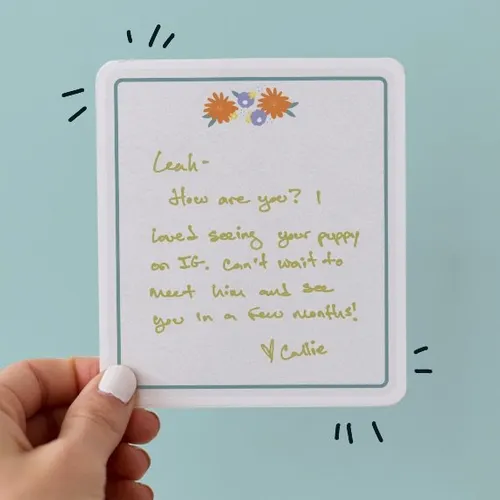 Leah-
How are you? I
loved seeing your puppy
on IG. Can't wait to
meet him and see
you in a few months!
♡ Callie